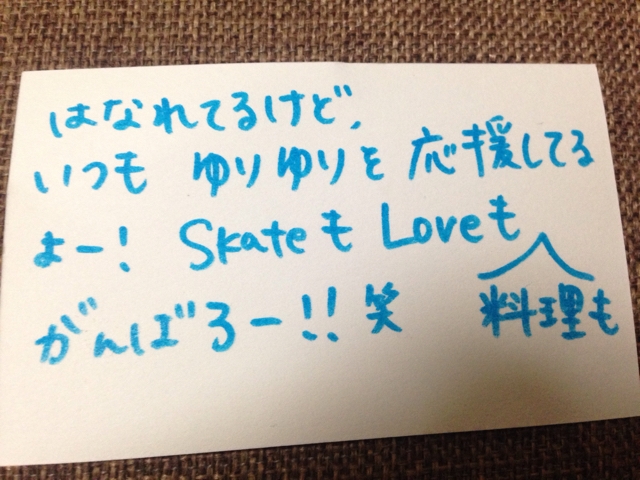 はなれてるけど、
いつも ゆりゆりを 応援してる
よー! Skateも Loveも
がんばろー!! 笑 料理も